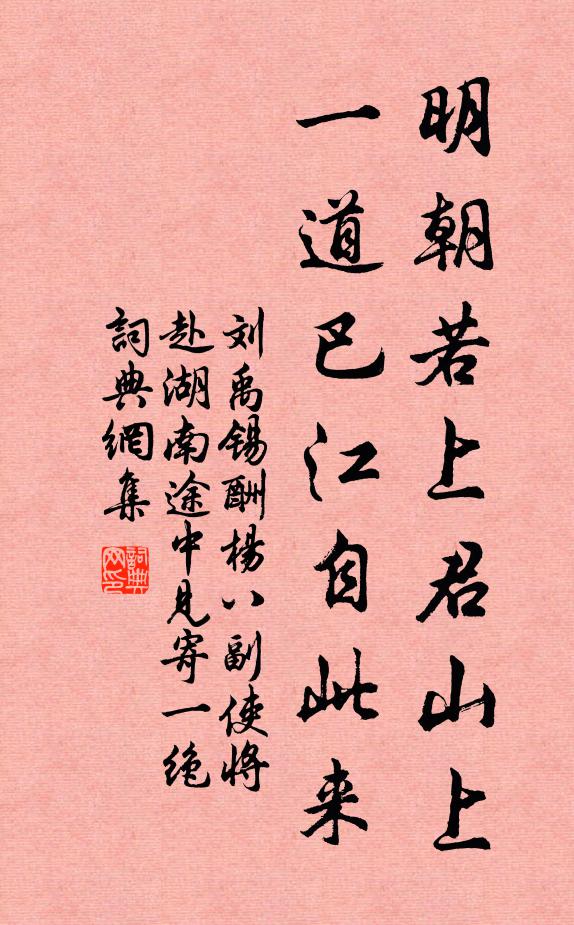 明朝若上君山上
一道巴江自此来
刘禹锡酬杨八副使将
赴湖南途中见寄一绝
詞典網集
詞典网印